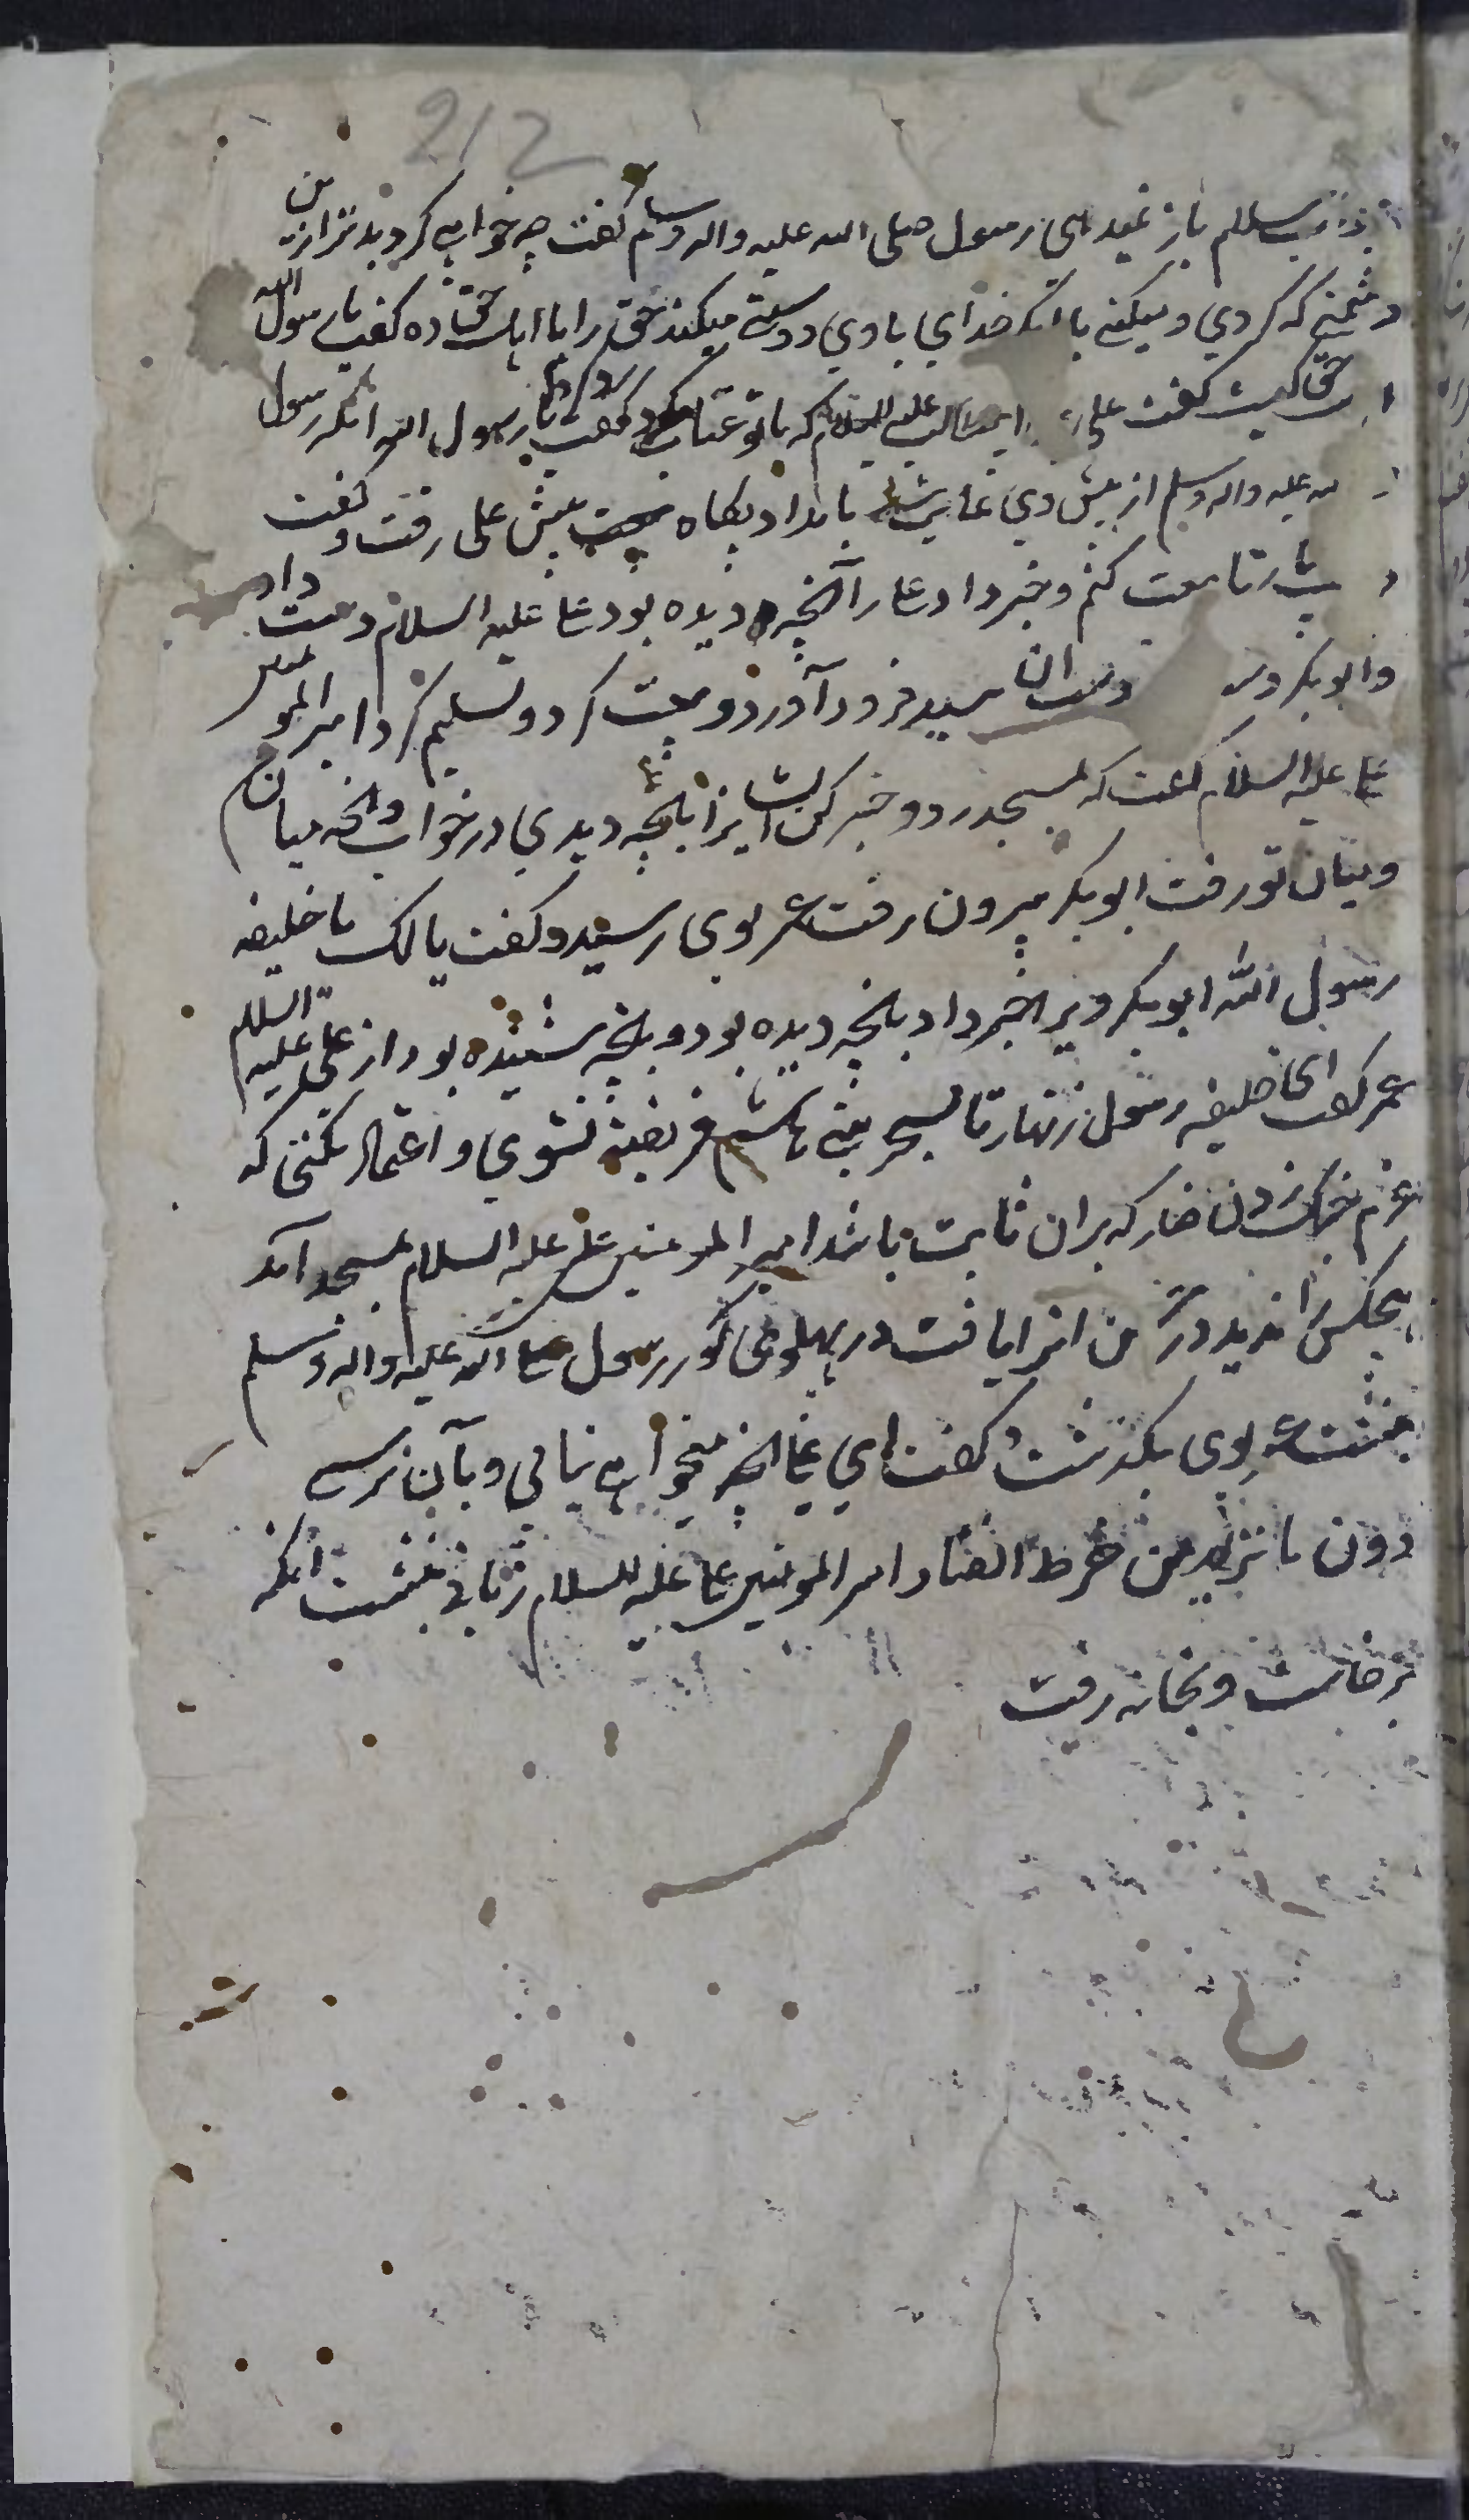 212
سلام باز نمیدهی رسول صلی الله علیه واله وسلم گفت چه خواهی کرد بدتر از این
دشمنی که کردی و میکنی با آنکه خدای با وی دوستی میکند حق را با اهلش ده گفت یا رسول الله
حق کیست گفت علی علیه السلام که با تو عتاب کرد گفت یا رسول الله آنگه رسول
علیه واله وسلم از پیش وی غایب شد بامداد پگاه پیش علی رفت و گفت
تا بیعت کنم و خبر داد علی را آنچه دیده بود علی علیه السلام دست داد
و ابوبکر دست فرود آورد و بیعت کرد و تسلیم کرد امیر المومنین
علی علیه السلام گفت که بمسجد رو و خبر کن ایشانرا بآنچه دیدی در خواب و آنچه میان من
و میان تو رفت ابوبکر بیرون رفت عمر بوی رسید و گفت یا لک یا خلیفه
رسول الله ابوبکر ویرا خبر داد بآنچه دیده بود و بآنچه شنیده بود از علی علیه السلام
عمر گفت ای خلیفه رسول زنهار تا بسحر بنی هاشم فریفته نشوی و اعتماد نکنی که
که بران ثابت باشد امیر المومنین علی علیه السلام بمسجد آمد
هیچکس را ندید در یافت در پهلوی گور رسول صلی الله علیه واله وسلم
بنشست عمر بوی بگذشت و گفت ای علی آنچه میخواهی نیابی و بآن نرسی
دون ما ترید من خرط القتاد امیر المومنین علی علیه السلام زمانی بنشست آنگه
برخاست و بخانه رفت